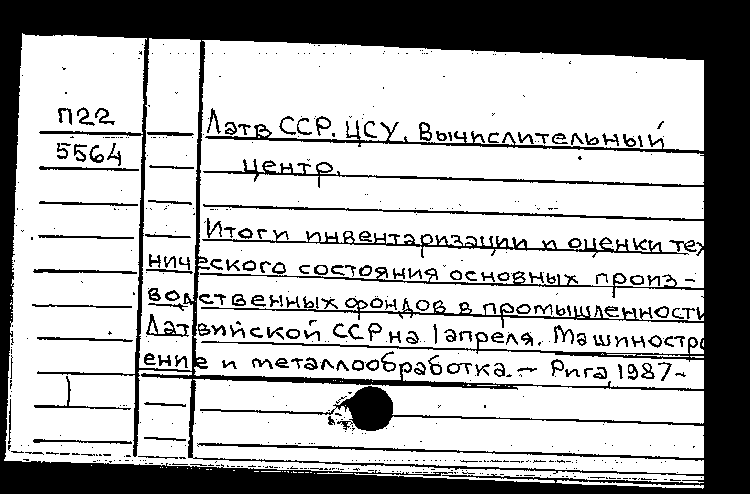 П22
5564
Латв ССР. ЦСУ. Вычислительный
центр.
Итоги инвентаризации и оценки тех
нического состояния основных произ-
водственных фондов в промышленности
Латвийской ССР на 1 апреля. Машиностро
ение и металлообработка. — Рига, 1987-